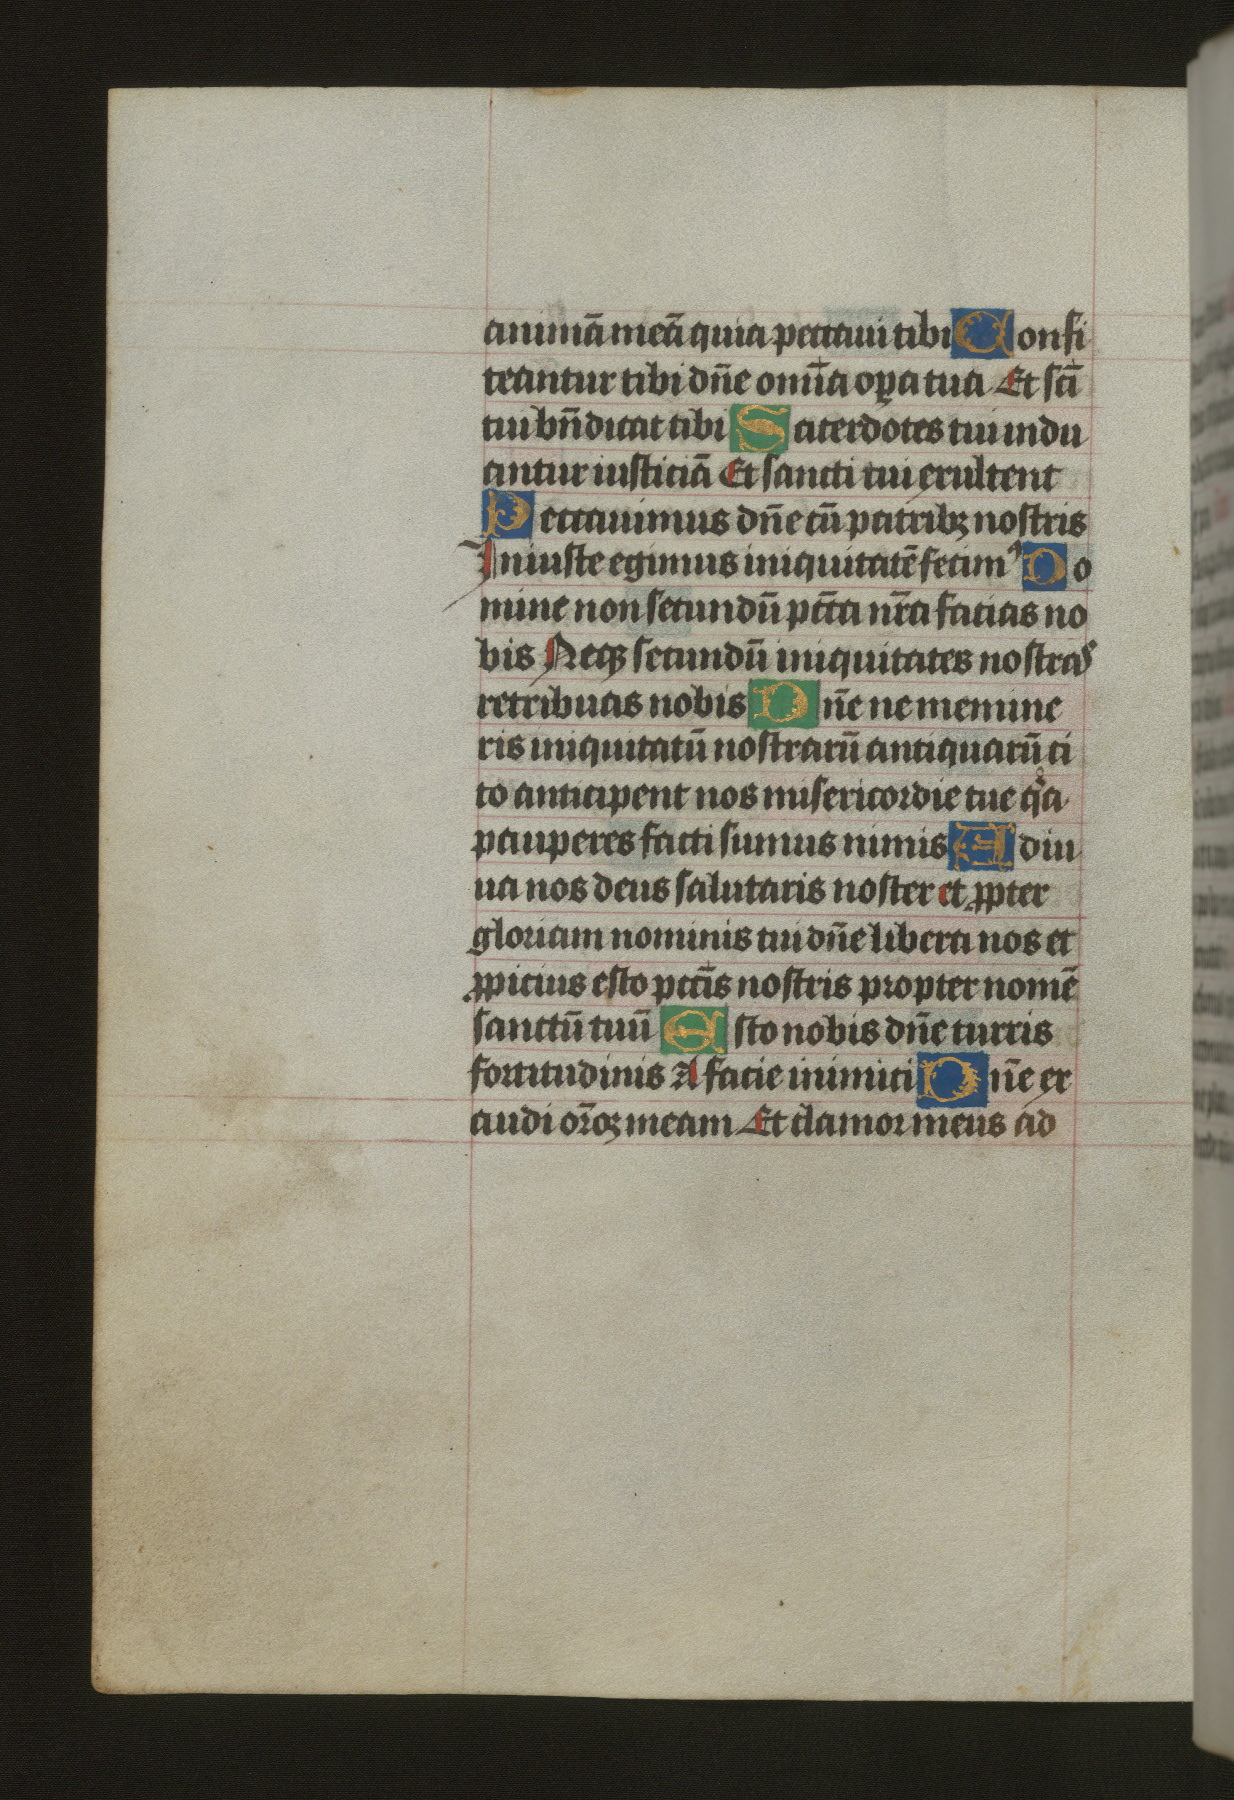 animā meā quia peccaui tibi Confi
teantur tibi dn̄e omīa opa tua Et scī
tui bn̄dicat tibi Sacerdotes tui indu
antur iusticiā Et sancti tui exultent
Peccauimus dn̄e cū patribꝫ nostris
Iniuste egimus iniquitatē fecimꝰ Do
mine non secundū pcc̄a nr̄a facias no
bis Neqꝫ secundū iniquitates nostras
retribuas nobis Dn̄e ne memine
ris iniquitatū nostrarū antiquarū ci
to anticipent nos misericordie tue qͥa
pauperes facti sumus nimis Adiu
ua nos deus salutaris noster et ꝓpter
gloriam nominis tui dn̄e libera nos et
ꝓpicius esto pccīs nostris propter nomē
sanctū tuū Esto nobis dn̄e turris
fortitudinis A facie inimici Dn̄e ex
audi or̄oꝫ meam Et clamor meus ad